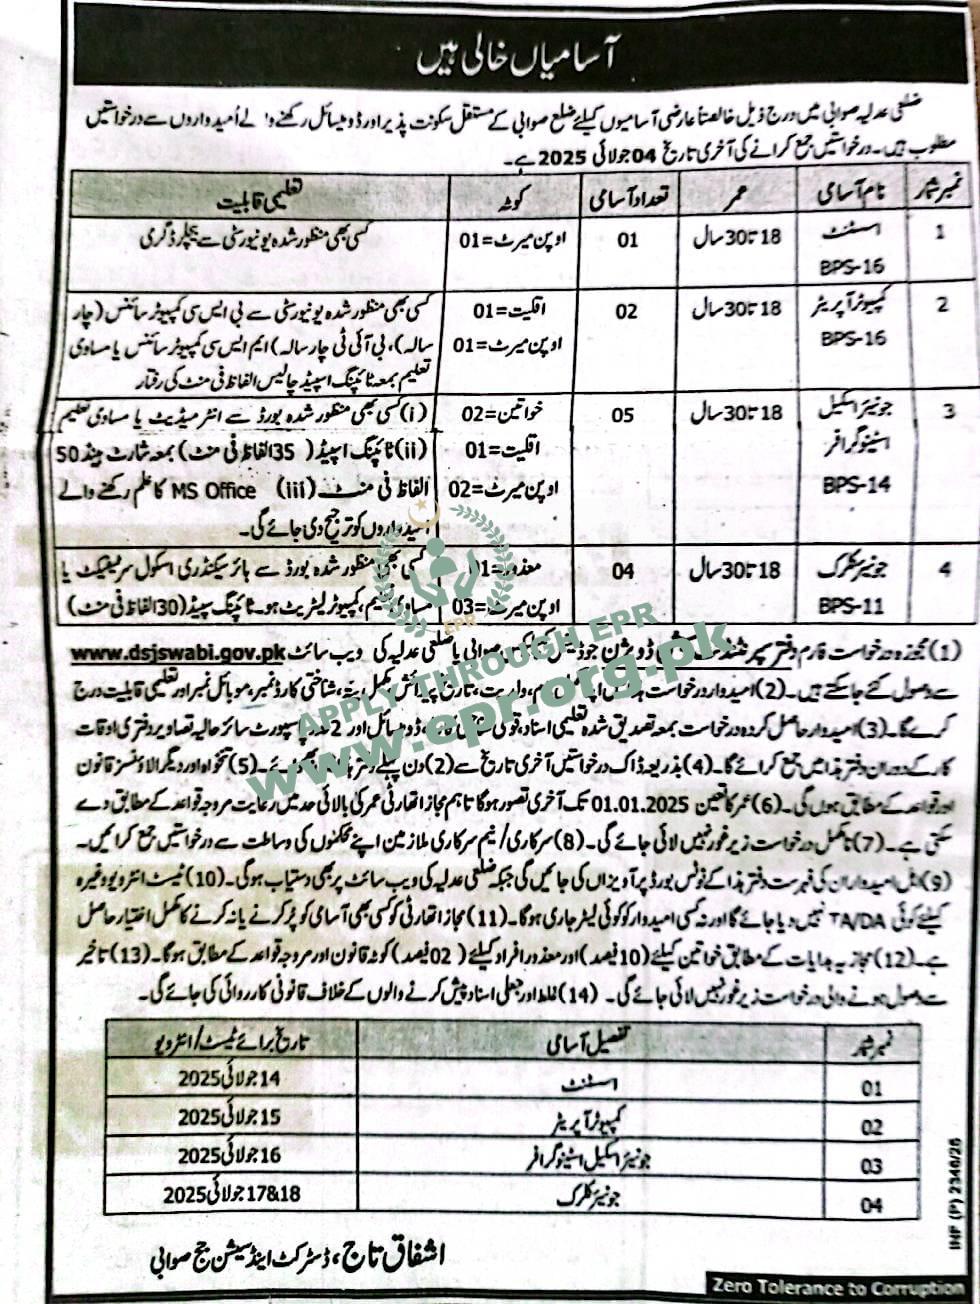 آسامیاں خالی ہیں
ضلعی عدلیہ صوابی میں درج ذیل خالصتاً عارضی آسامیوں کیلئے ضلع صوابی کے مستقل سکونت پذیر اور ڈومیسائل رکھنے والے اُمیدواروں سے درخواستیں
مطلوب ہیں۔ درخواستیں جمع کرانے کی آخری تاریخ 04 جولائی 2025 ہے۔
نمبر شمار نام آسامی عمر تعداد آسامی کوٹہ تعلیمی قابلیت
1 اسسٹنٹ 18 تا 30 سال 01 اوپن میرٹ=01 کسی بھی منظور شدہ یونیورسٹی سے بیچلر ڈگری
BPS-16
2 کمپیوٹر آپریٹر 18 تا 30 سال 02 اقلیت=01 کسی بھی منظور شدہ یونیورسٹی سے بی ایس سی کمپیوٹر سائنس (چار
BPS-16 اوپن میرٹ=01 سالہ)، بی آئی ٹی چار سالہ) ایم ایس سی کمپیوٹر سائنس یا مساوی
تعلیم بمعہ ٹائپنگ اسپیڈ چالیس الفاظ فی منٹ کی رفتار
3 جونیئر اسکیل 18 تا 30 سال 05 خواتین=02 (i) کسی بھی منظور شدہ بورڈ سے انٹرمیڈیٹ یا مساوی تعلیم
اسٹینوگرافر اقلیت=01 (ii) ٹائپنگ اسپیڈ (35 الفاظ فی منٹ) بمعہ شارٹ ہینڈ 50
BPS-14 اوپن میرٹ=02 الفاظ فی منٹ (iii) MS Office کا علم رکھنے والے
اُمیدواروں کو ترجیح دی جائے گی۔
4 جونیئر کلرک 18 تا 30 سال 04 معذور=01 کسی بھی منظور شدہ بورڈ سے ہائر سیکنڈری اسکول سرٹیفکیٹ یا
BPS-11 اوپن میرٹ=03 مساوی تعلیم، کمپیوٹر لیٹریٹ ہو۔ ٹائپنگ سپیڈ (30 الفاظ فی منٹ)
EPR
APPLY THROUGH EPR
www.epr.org.pk
(1) مجوزہ درخواست فارم دفتر سپرنٹنڈنٹ ڈویشن جوڈیشل صوابی یا ضلعی عدلیہ کی ویب سائٹ www.dsjswabi.gov.pk
سے وصول کئے جا سکتے ہیں۔ (2) امیدوار درخواست میں نام، ولدیت، تاریخ پیدائش، مکمل پتہ، شناختی کارڈ نمبر، موبائل نمبر اور تعلیمی قابلیت درج
کرے گا۔ (3) امیدوار حاصل کردہ درخواست بمعہ تصدیق شدہ تعلیمی اسناد، قومی شناختی کارڈ، ڈومیسائل اور 2 عدد پاسپورٹ سائز حالیہ تصاویر دفتری اوقات
کار کے دوران دفتر ہذا میں جمع کرائے گا۔ (4) بذریعہ ڈاک درخواستیں آخری تاریخ سے (2) دن پہلے دفتر (5) تنخواہ اور دیگر الاؤنسز قانون
اور قواعد کے مطابق ہوں گی۔ (6) عمر کا تعین 01.01.2025 تک آخری تصور ہوگا تاہم مجاز اتھارٹی عمر کی بالائی حد میں رعایت مروجہ قواعد کے مطابق دے
سکتی ہے۔ (7) نامکمل درخواست زیر غور نہیں لائی جائے گی۔ (8) سرکاری/نیم سرکاری ملازمین اپنے محکموں کی وساطت سے درخواستیں جمع کرائیں۔
(9) اہل امیدواران کی فہرست دفتر ہذا کے نوٹس بورڈ پر آویزاں کی جائیں گی جبکہ ضلعی عدلیہ کی ویب سائٹ پر بھی دستیاب ہوگی۔ (10) ٹیسٹ انٹرویو وغیرہ
کیلئے کوئی TA/DA نہیں دیا جائے گا اور نہ کسی امیدوار کو کوئی لیٹر جاری ہوگا۔ (11) مجاز اتھارٹی کو کسی بھی آسامی کو پُر کرنے یا نہ کرنے کا مکمل اختیار حاصل
ہے۔ (12) مجازیہ ہدایات کے مطابق خواتین کیلئے (10 فیصد) اور معذور افراد کیلئے (02 فیصد) کوٹہ قانون اور مروجہ قواعد کے مطابق ہوگا۔ (13) تاخیر
سے وصول ہونے والی درخواست زیر غور نہیں لائی جائے گی۔ (14) غلط اور جعلی اسناد پیش کرنے والوں کے خلاف قانونی کارروائی کی جائے گی۔
نمبر شمار تفصیل آسامی تاریخ برائے ٹیسٹ/انٹرویو
01 اسسٹنٹ 14 جولائی 2025
02 کمپیوٹر آپریٹر 15 جولائی 2025
03 جونیئر اسکیل اسٹینوگرافر 16 جولائی 2025
04 جونیئر کلرک 17&18 جولائی 2025
اشفاق تاج، ڈسٹرکٹ اینڈ سیشن جج صوابی
INF (P) 2346/25
Zero Tolerance to Corruption